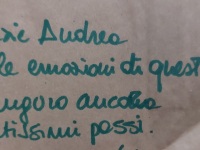 zie Andrea
le emozioni di quest
nguro ancora
tissimi passi.